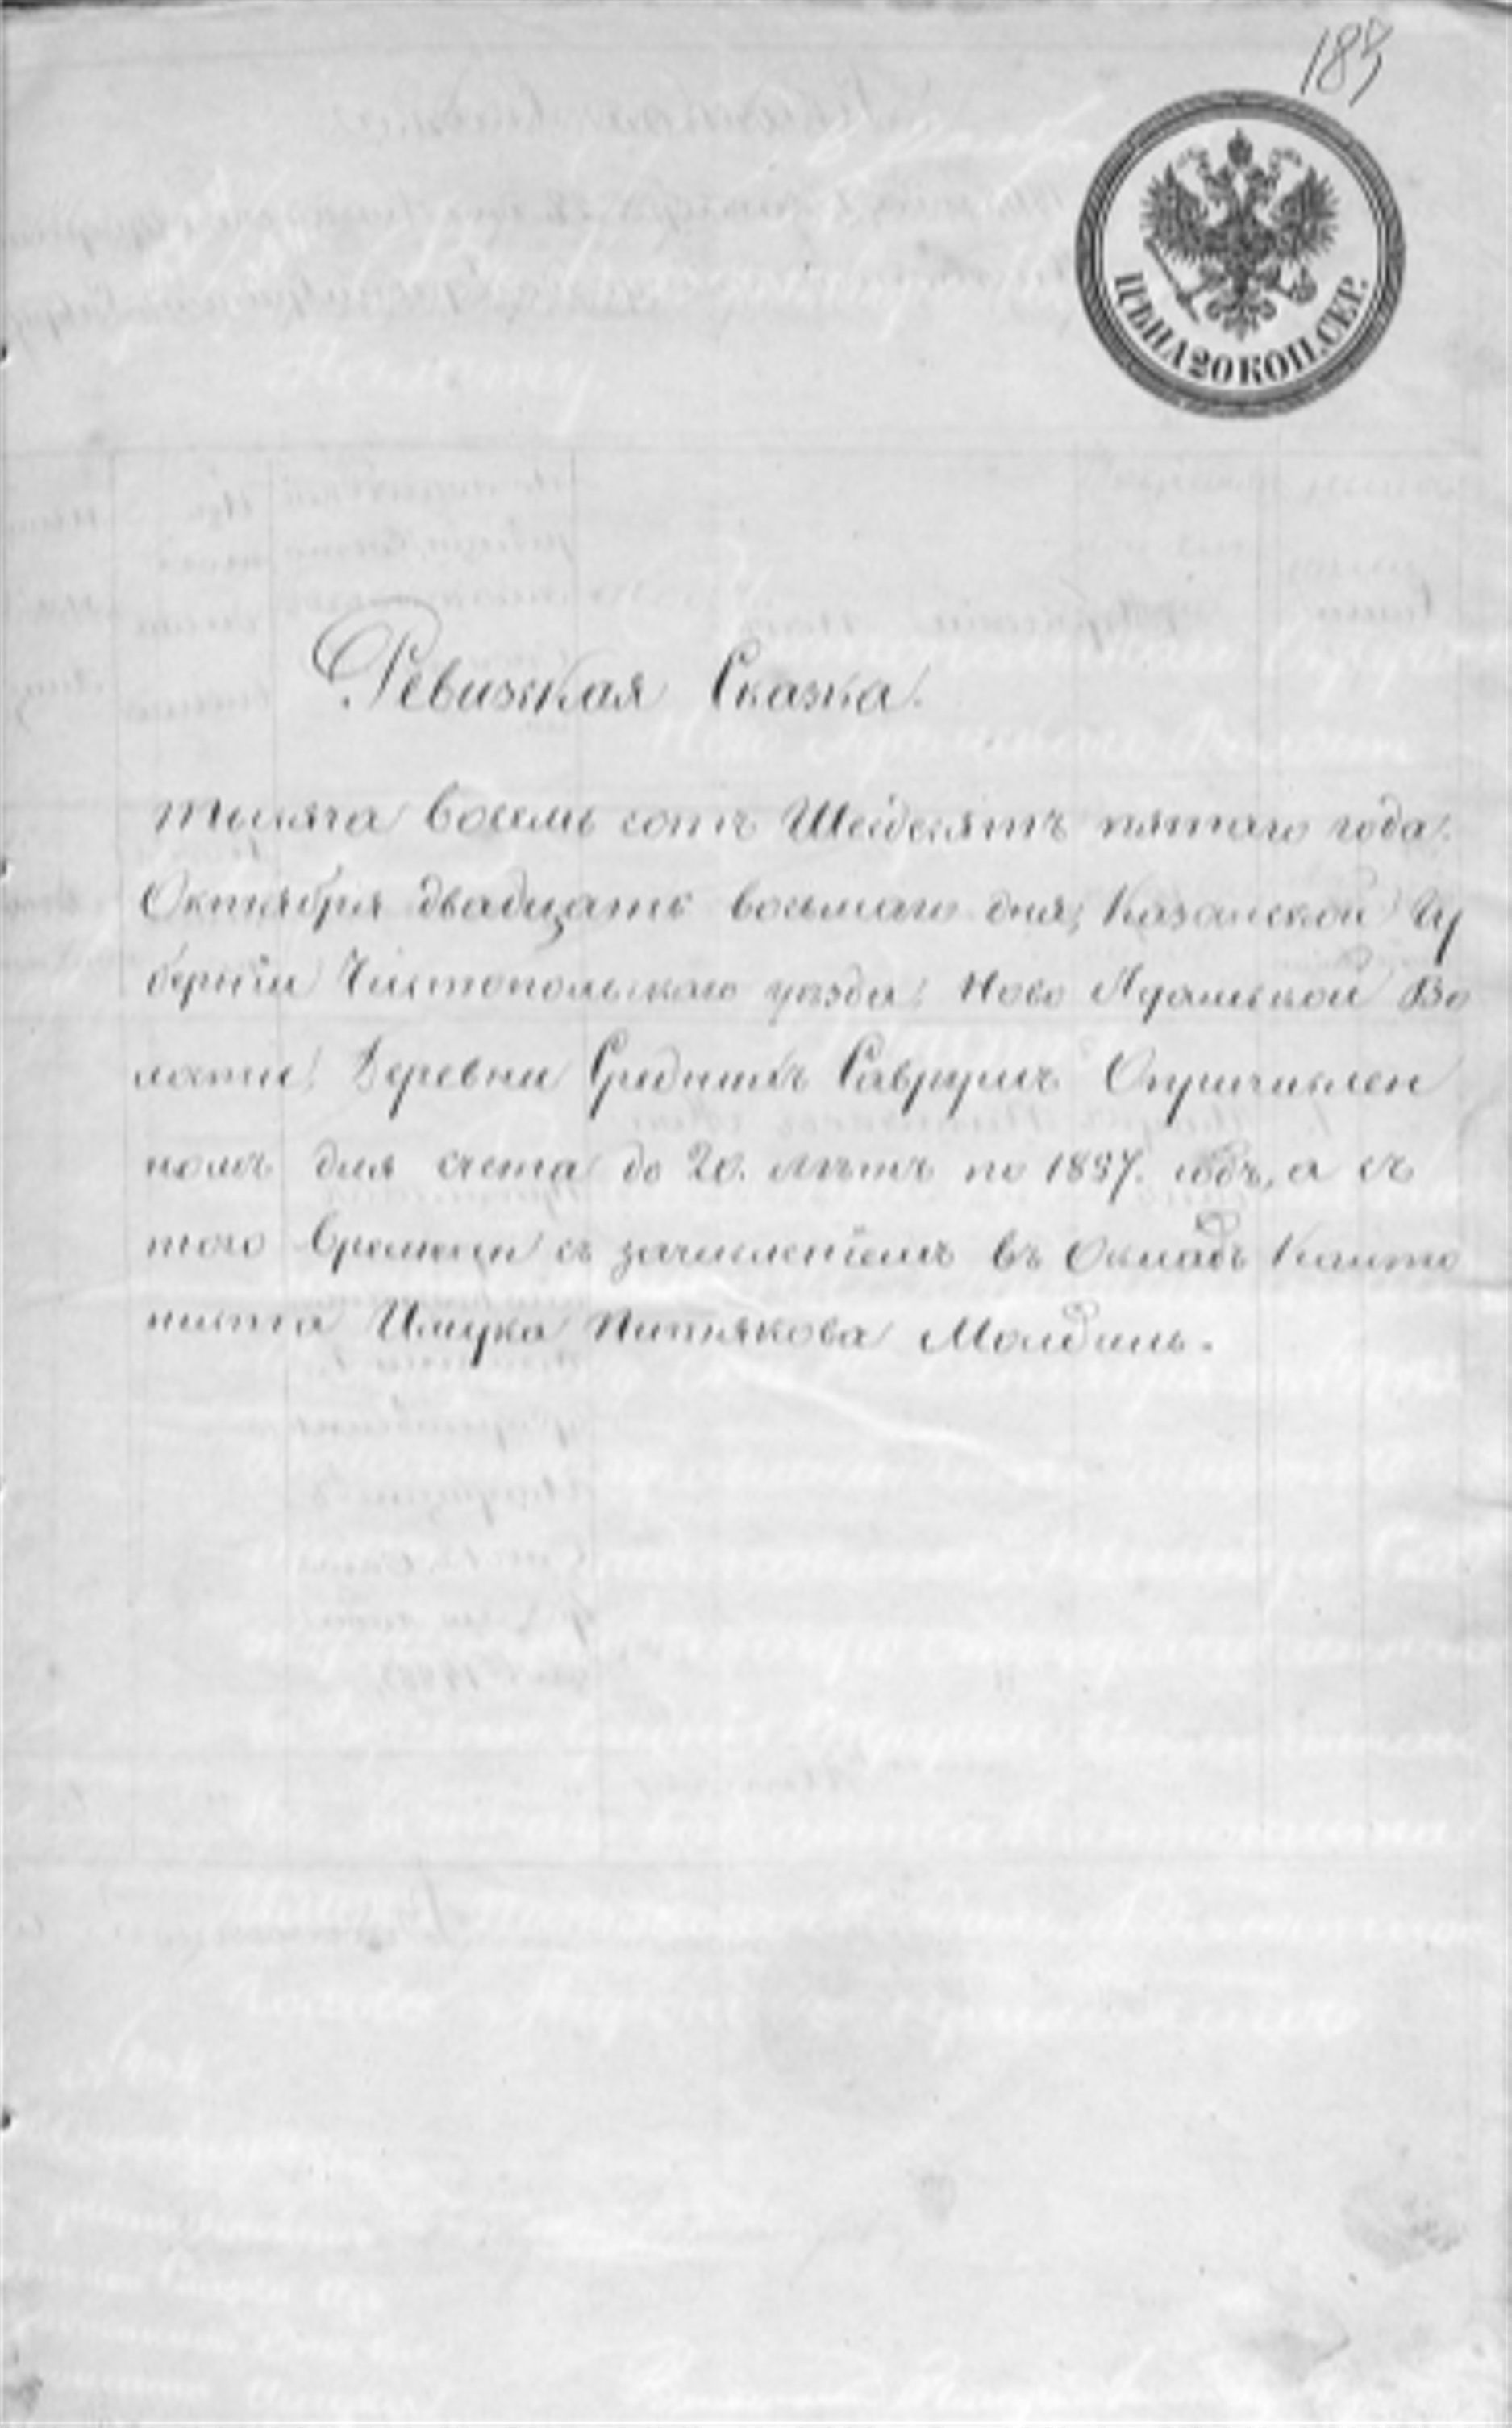 183
ЦѢНА 20 КОП. СЕР.
Ревизкая Сказка.
тысяча восемь сотъ Шесдесятъ пятаго года.
Октября двадцать восьмаго дня, Казанской Гу
берніи Чистопольскаго уезда, Ново Адамской Во
лости, Деревни Среднихъ Савруш Опричислен
номъ для счета до 20. лѣтъ по 1897. годъ, а съ
того времени съ зачисленіемъ въ Окладъ Канто
ниста Имука Питякова Молдинъ.